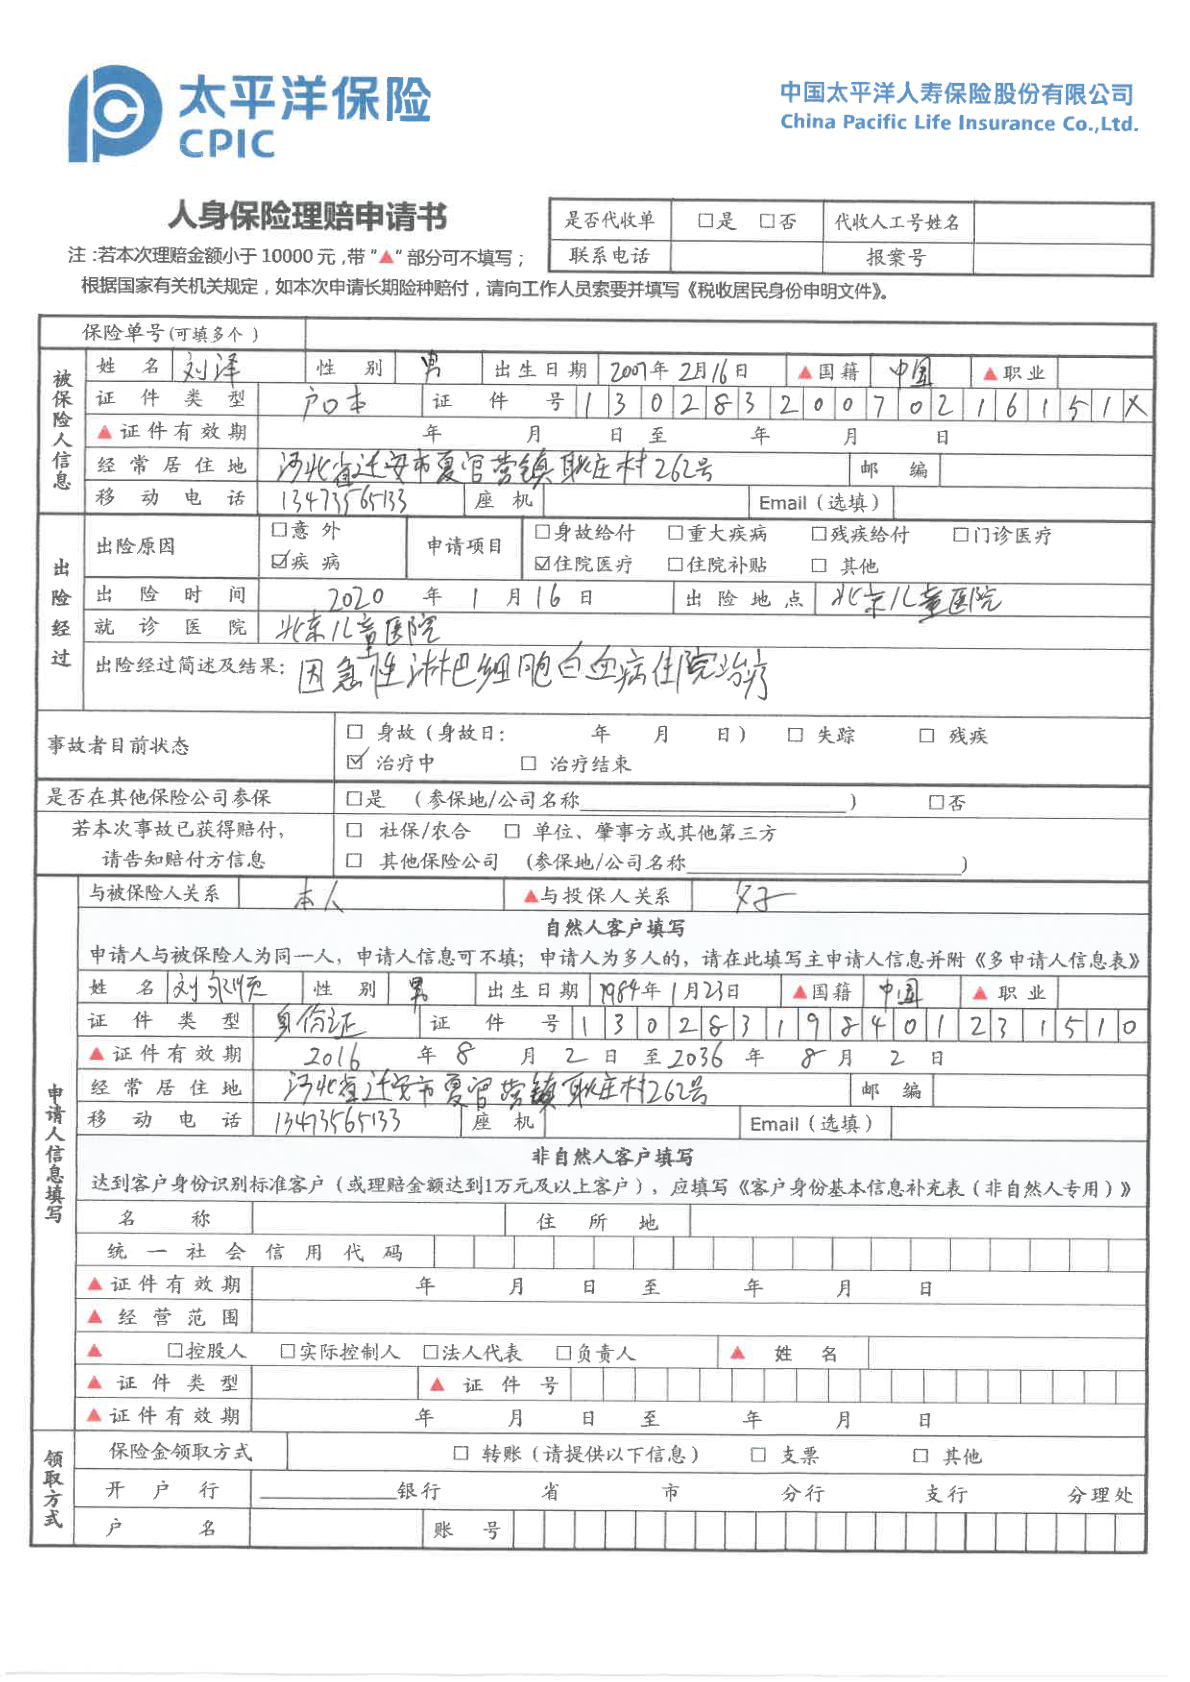 太平洋保险
CPIC
中国太平洋人寿保险股份有限公司
China Pacific Life Insurance Co.,Ltd.
人身保险理赔申请书
是否代收单 □是 □否 代收人工号姓名
联系电话 报案号
注:若本次理赔金额小于10000元,带"▲"部分可不填写;
根据国家有关机关规定,如本次申请长期险种赔付,请向工作人员索要并填写《税收居民身份申明文件》。
保险单号(可填多个)
被保险人信息
姓名 刘泽 性别 男 出生日期 2007年2月16日 ▲国籍 中国 ▲职业
证件类型 户口本 证件号 13028320070216151X
▲证件有效期 年 月 日 至 年 月 日
经常居住地 河北省迁安市夏官营镇耿庄村262号 邮编
移动电话 13473565133 座机 Email(选填)
出险经过
出险原因 □意外 ☑疾病
申请项目 □身故给付 □重大疾病 □残疾给付 □门诊医疗
☑住院医疗 □住院补贴 □ 其他
出险时间 2020 年 1 月 16 日 出险地点 北京儿童医院
就诊医院 北京儿童医院
出险经过简述及结果: 因急性淋巴细胞白血病住院治疗
事故者目前状态 □ 身故(身故日: 年 月 日) □ 失踪 □ 残疾
☑ 治疗中 □ 治疗结束
是否在其他保险公司参保 □是 (参保地/公司名称 ) □否
若本次事故已获得赔付, □ 社保/农合 □ 单位、肇事方或其他第三方
请告知赔付方信息 □ 其他保险公司 (参保地/公司名称 )
申请人信息填写
与被保险人关系 本人 ▲与投保人关系 父子
自然人客户填写
申请人与被保险人为同一人,申请人信息可不填;申请人为多人的,请在此填写主申请人信息并附《多申请人信息表》
姓名 刘 性别 男 出生日期 1984年1月23日 ▲国籍 中国 ▲职业
证件类型 身份证 证件号 130283198401231510
▲证件有效期 2016 年 8 月 2 日 至2036 年 8 月 2 日
经常居住地 河北省迁安市夏官营镇耿庄村262号 邮编
移动电话 13473565133 座机 Email(选填)
非自然人客户填写
达到客户身份识别标准客户(或理赔金额达到1万元及以上客户),应填写《客户身份基本信息补充表(非自然人专用)》
名称 住所地
统一社会信用代码
▲证件有效期 年 月 日 至 年 月 日
▲经营范围
▲ □控股人 □实际控制人 □法人代表 □负责人 ▲姓名
▲证件类型 ▲证件号
▲证件有效期 年 月 日 至 年 月 日
领取方式
保险金领取方式 □ 转账(请提供以下信息) □ 支票 □ 其他
开户行 银行 省 市 分行 支行 分理处
户名 账号